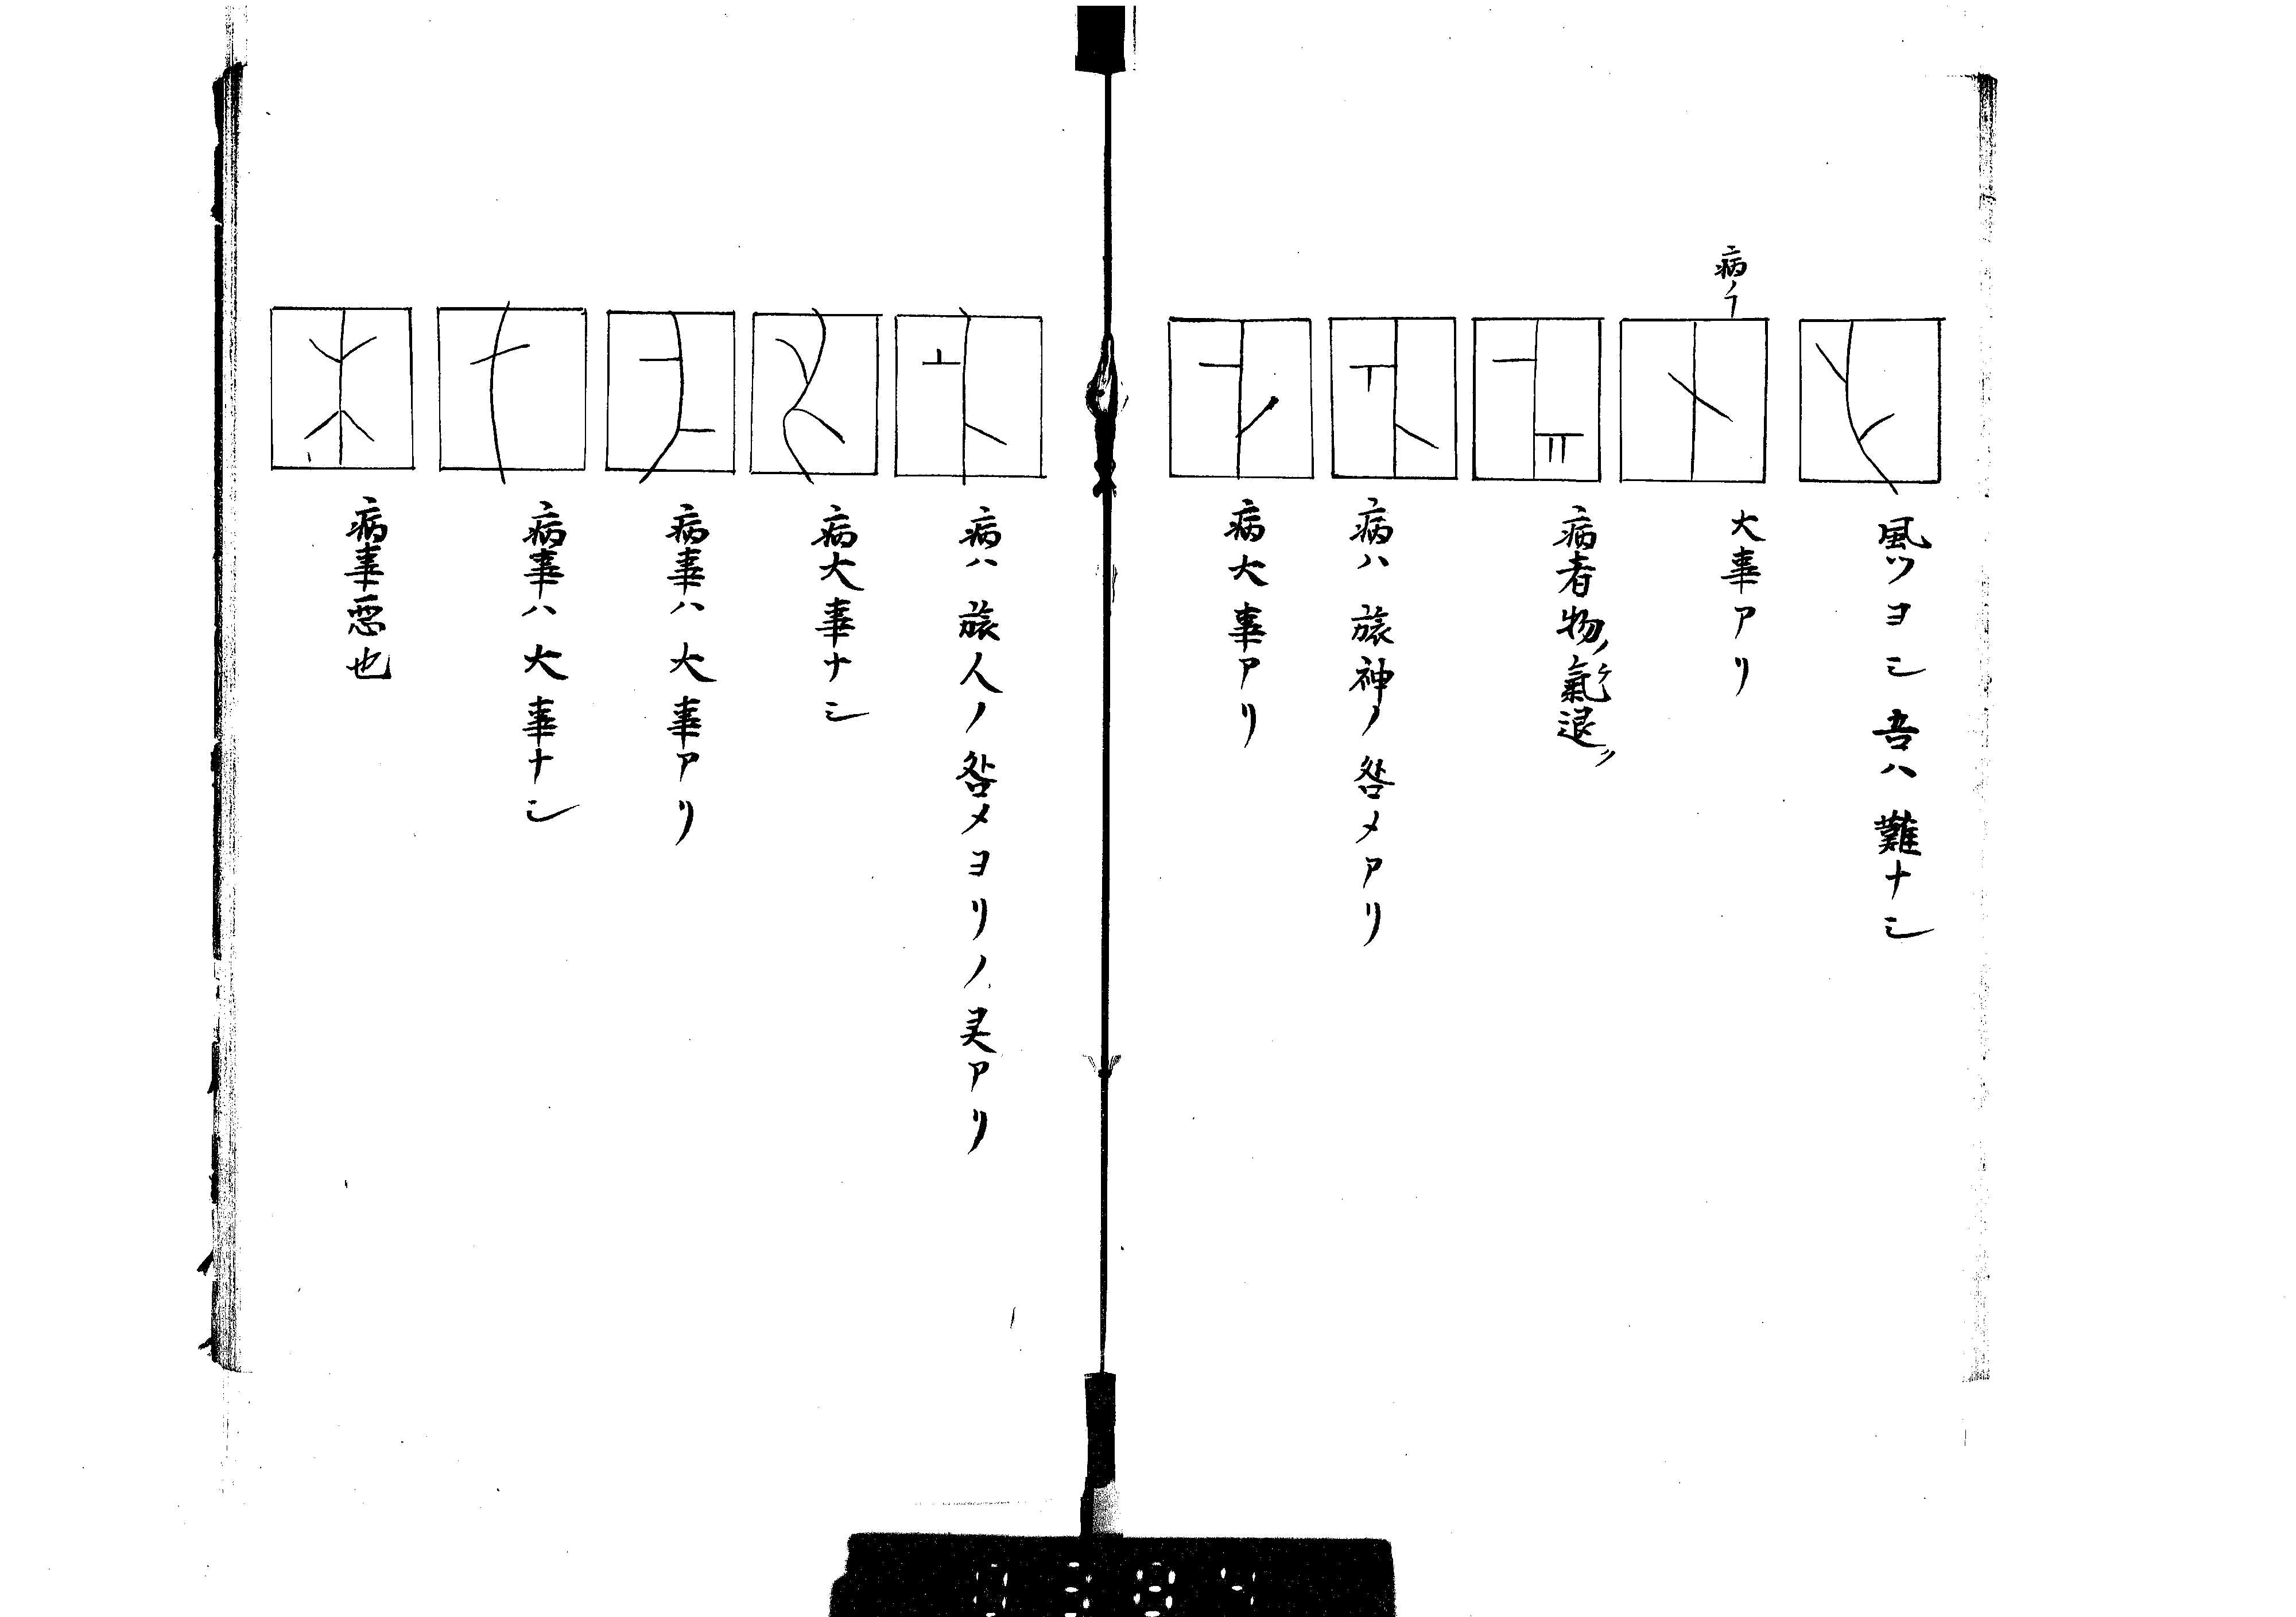 風ツヨシ吾ハ難ナシ
病ノヿ
大事アリ
病者物ノ氣ケ退ツ
病ハ旅神ノ咎メアリ
病大事アリ
病ハ旅人ノ咎メヨリノ灵アリ
病大事ナシ
病事ハ大事アリ
病事ハ大事ナシ
病事悪也